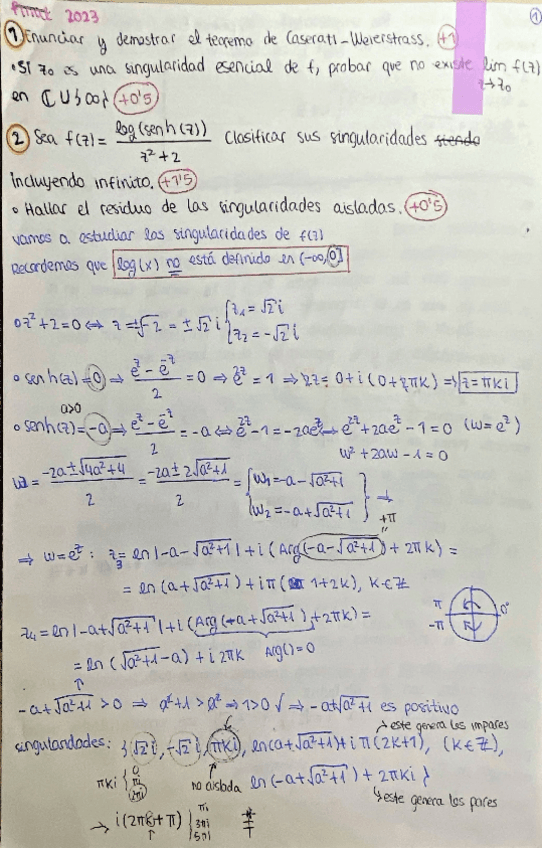 2023
①
① Enunciar y demostrar el teorema de Caserati-Weierstrass. +1
• Si z₀ es una singularidad esencial de f, probar que no existe lim f(z)
z→z₀
en ℂ∪{∞} +0'5
② Sea f(z) = log(senh(z)) / z²+2 Clasificar sus singularidades siendo
incluyendo infinito. +1'5
• Hallar el residuo de las singularidades aisladas. +0'5
vamos a estudiar las singularidades de f(z)
Recordemos que log(x) no está definido en (-∞,0]
o z²+2=0 ⇔ z=±√-2 = ±√2 i { z₁=√2 i
z₂=-√2 i
o senh(z)=0 ⇒ (e^z - e^-z)/2 = 0 ⇒ e^2z = 1 ⇒ 2z = 0+i(0+2πk) ⇒ z=πki
a>0
o senh(z)=-a ⇒ (e^z - e^-z)/2 = -a ⇔ e^2z -1 = -2ae^z ⇔ e^2z+2ae^z-1=0 (w=e^z)
w²+2aw-1=0
w = (-2a±√4a²+4)/2 = (-2a±2√a²+1)/2 = { w₁=-a-√a²+1
w₂=-a+√a²+1 }
+π
⇒ w=e^z : z₃ = ln|-a-√a²+1| + i(Arg(-a-√a²+1)+2πk) =
= ln(a+√a²+1)+iπ(1+2k), k∈ℤ
z₄=ln|-a+√a²+1|+i(Arg(-a+√a²+1)+2πk)=
π 0
-π
= ln(√a²+1-a)+i2πk Arg()=0
-a+√a²+1>0 ⇒ a²+1>a² ⇒ 1>0 √ ⇒ -a+√a²+1 es positivo
este genera los impares
singularidades: {√2 i, -√2 i, πki, ln(a+√a²+1)+iπ(2k+1), (k∈ℤ),
πki { 0 πi 2πi no aislada ln(-a+√a²+1)+2πki }
este genera los pares
→ i(2πk+π) | πi
3πi
5πi